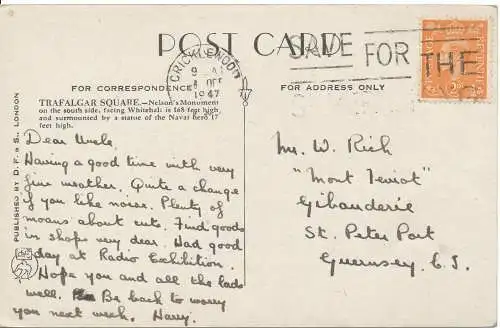 POST CARD
SAVE FOR THE
CRICKLEWOOD
1947
FOR CORRESPONDENCE
FOR ADDRESS ONLY
TRAFALGAR SQUARE.—Nelson's Monument
on the south side, facing Whitehall is 168 feet high
and surmounted by a statue of the Naval hero 17
feet high.
PUBLISHED BY D. F. & S., LONDON
Dear Uncle,
Having a good time with very
fine weather. Quite a change
if you like noise. Plenty of
moans about cuts. Find goods
in shops very dear. Had good
day at Radio Exhibition.
Hope you and all the lads
well. Be back to worry
you next week. Harry.
Mr. W. Rich
"Mont Teviot"
Gibauderie
St. Peter Port
Guernsey. C.I.